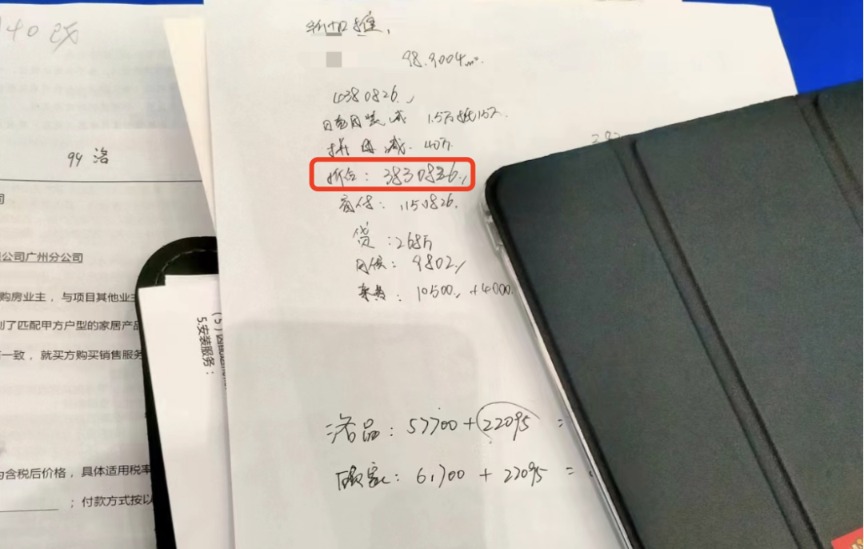 940改
94 洛
公司广州分公司
购房业主，与项目其他业主
划了匹配甲方户型的家居产品
一致，就买方购买销售服务
为含税后价格，具体适用税率
；付款方式按以
5.安装服务：
98.9004㎡.
4380826.
减 1.5万抵15万.
减. 40万.
折后：3830826.
首付：1150826.
贷：268万
月供：9802
10500 +4000
洛品：57700+22095 =
顾家：61700 + 22095 =